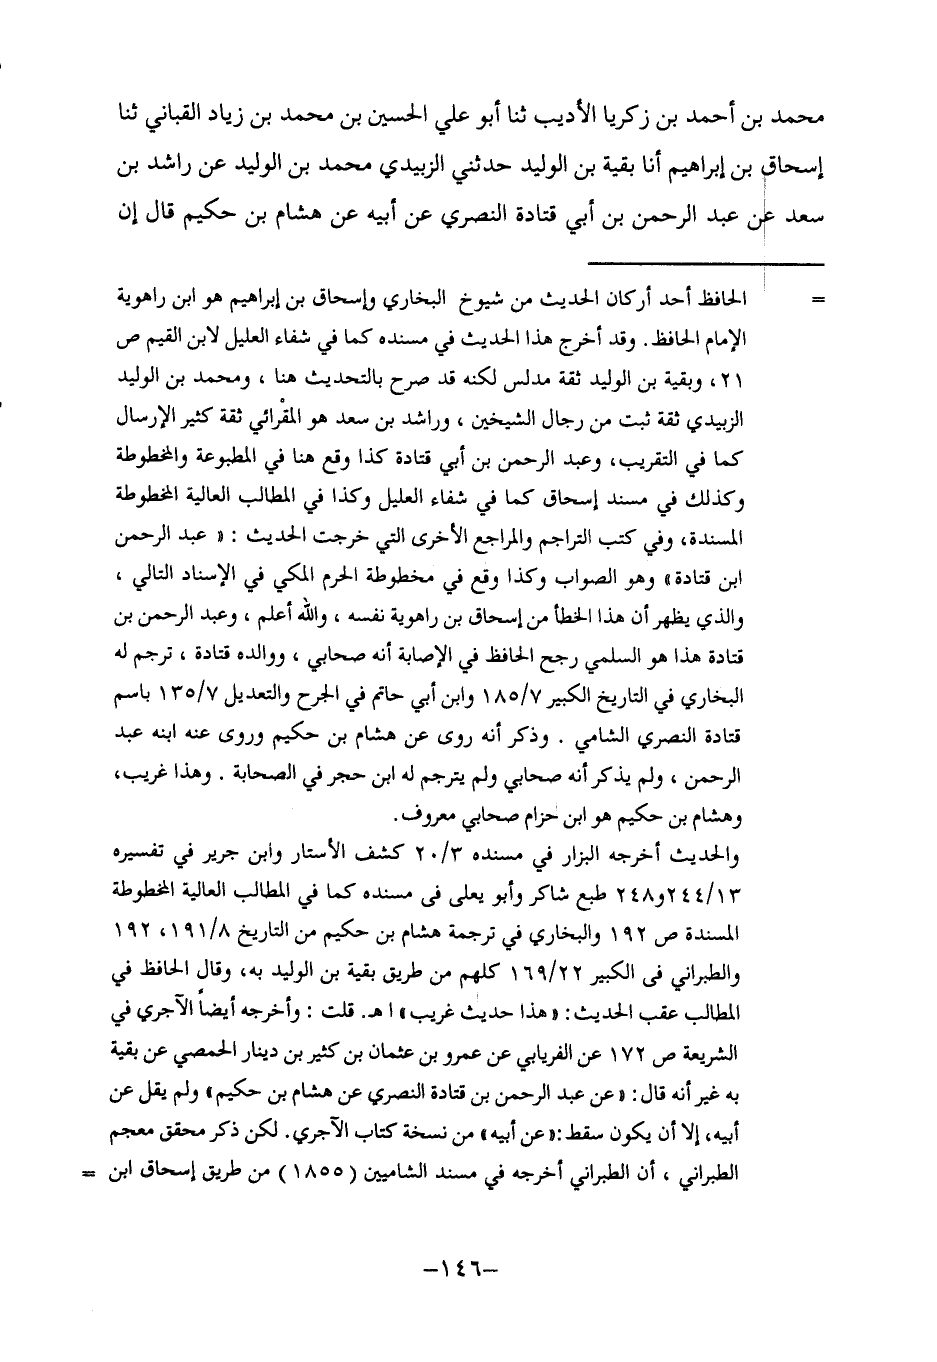 محمد بن أحمد بن زكريا الأديب ثنا أبو علي الحسين بن محمد بن زياد القباني ثنا
إسحاق بن إبراهيم أنا بقية بن الوليد حدثني الزبيدي محمد بن الوليد عن راشد بن
سعد عن عبد الرحمن بن أبي قتادة النصري عن أبيه عن هشام بن حكيم قال إن
= الحافظ أحد أركان الحديث من شيوخ البخاري وإسحاق بن إبراهيم هو ابن راهوية
الإمام الحافظ. وقد أخرج هذا الحديث في مسنده كما في شفاء العليل لابن القيم ص
٢١، وبقية بن الوليد ثقة مدلس لكنه قد صرح بالتحديث هنا ، ومحمد بن الوليد
الزبيدي ثقة ثبت من رجال الشيخين ، وراشد بن سعد هو المقْرائي ثقة كثير الإرسال
كما في التقريب، وعبد الرحمن بن أبي قتادة كذا وقع هنا في المطبوعة والمخطوطة
وكذلك في مسند إسحاق كما في شفاء العليل وكذا في المطالب العالية المخطوطة
المسندة، وفي كتب التراجم والمراجع الأخرى التي خرجت الحديث : « عبد الرحمن
ابن قتادة» وهو الصواب وكذا وقع في مخطوطة الحرم المكي في الإسناد التالي ،
والذي يظهر أن هذا الخطأ من إسحاق بن راهوية نفسه ، والله أعلم ، وعبد الرحمن بن
قتادة هذا هو السلمي رجح الحافظ في الإصابة أنه صحابي ، ووالده قتادة ، ترجم له
البخاري في التاريخ الكبير ١٨٥/٧ وابن أبي حاتم في الجرح والتعديل ١٣٥/٧ باسم
قتادة النصري الشامي . وذكر أنه روى عن هشام بن حكيم وروى عنه ابنه عبد
الرحمن ، ولم يذكر أنه صحابي ولم يترجم له ابن حجر في الصحابة . وهذا غريب،
وهشام بن حكيم هو ابن حزام صحابي معروف.
والحديث أخرجه البزار في مسنده ٢٠/٣ كشف الأستار وابن جرير في تفسيره
٢٤٤/١٣و٢٤٨ طبع شاكر وأبو يعلى فى مسنده كما في المطالب العالية المخطوطة
المسندة ص ١٩٢ والبخاري في ترجمة هشام بن حكيم من التاريخ ١٩١/٨، ١٩٢
والطبراني فى الكبير ١٦٩/٢٢ كلهم من طريق بقية بن الوليد به، وقال الحافظ في
المطالب عقب الحديث: «هذا حديث غريب» ا هـ. قلت : وأخرجه أيضاً الآجري في
الشريعة ص ١٧٢ عن الفريابي عن عمرو بن عثمان بن كثير بن دينار الحمصي عن بقية
به غير أنه قال: «عن عبد الرحمن بن قتادة النصري عن هشام بن حكيم» ولم يقل عن
أبيه، إلا أن يكون سقط:«عن أبيه» من نسخة كتاب الآجري. لكن ذكر محقق معجم
الطبراني ، أن الطبراني أخرجه في مسند الشاميين (١٨٥٥) من طريق إسحاق ابن =
–١٤٦–